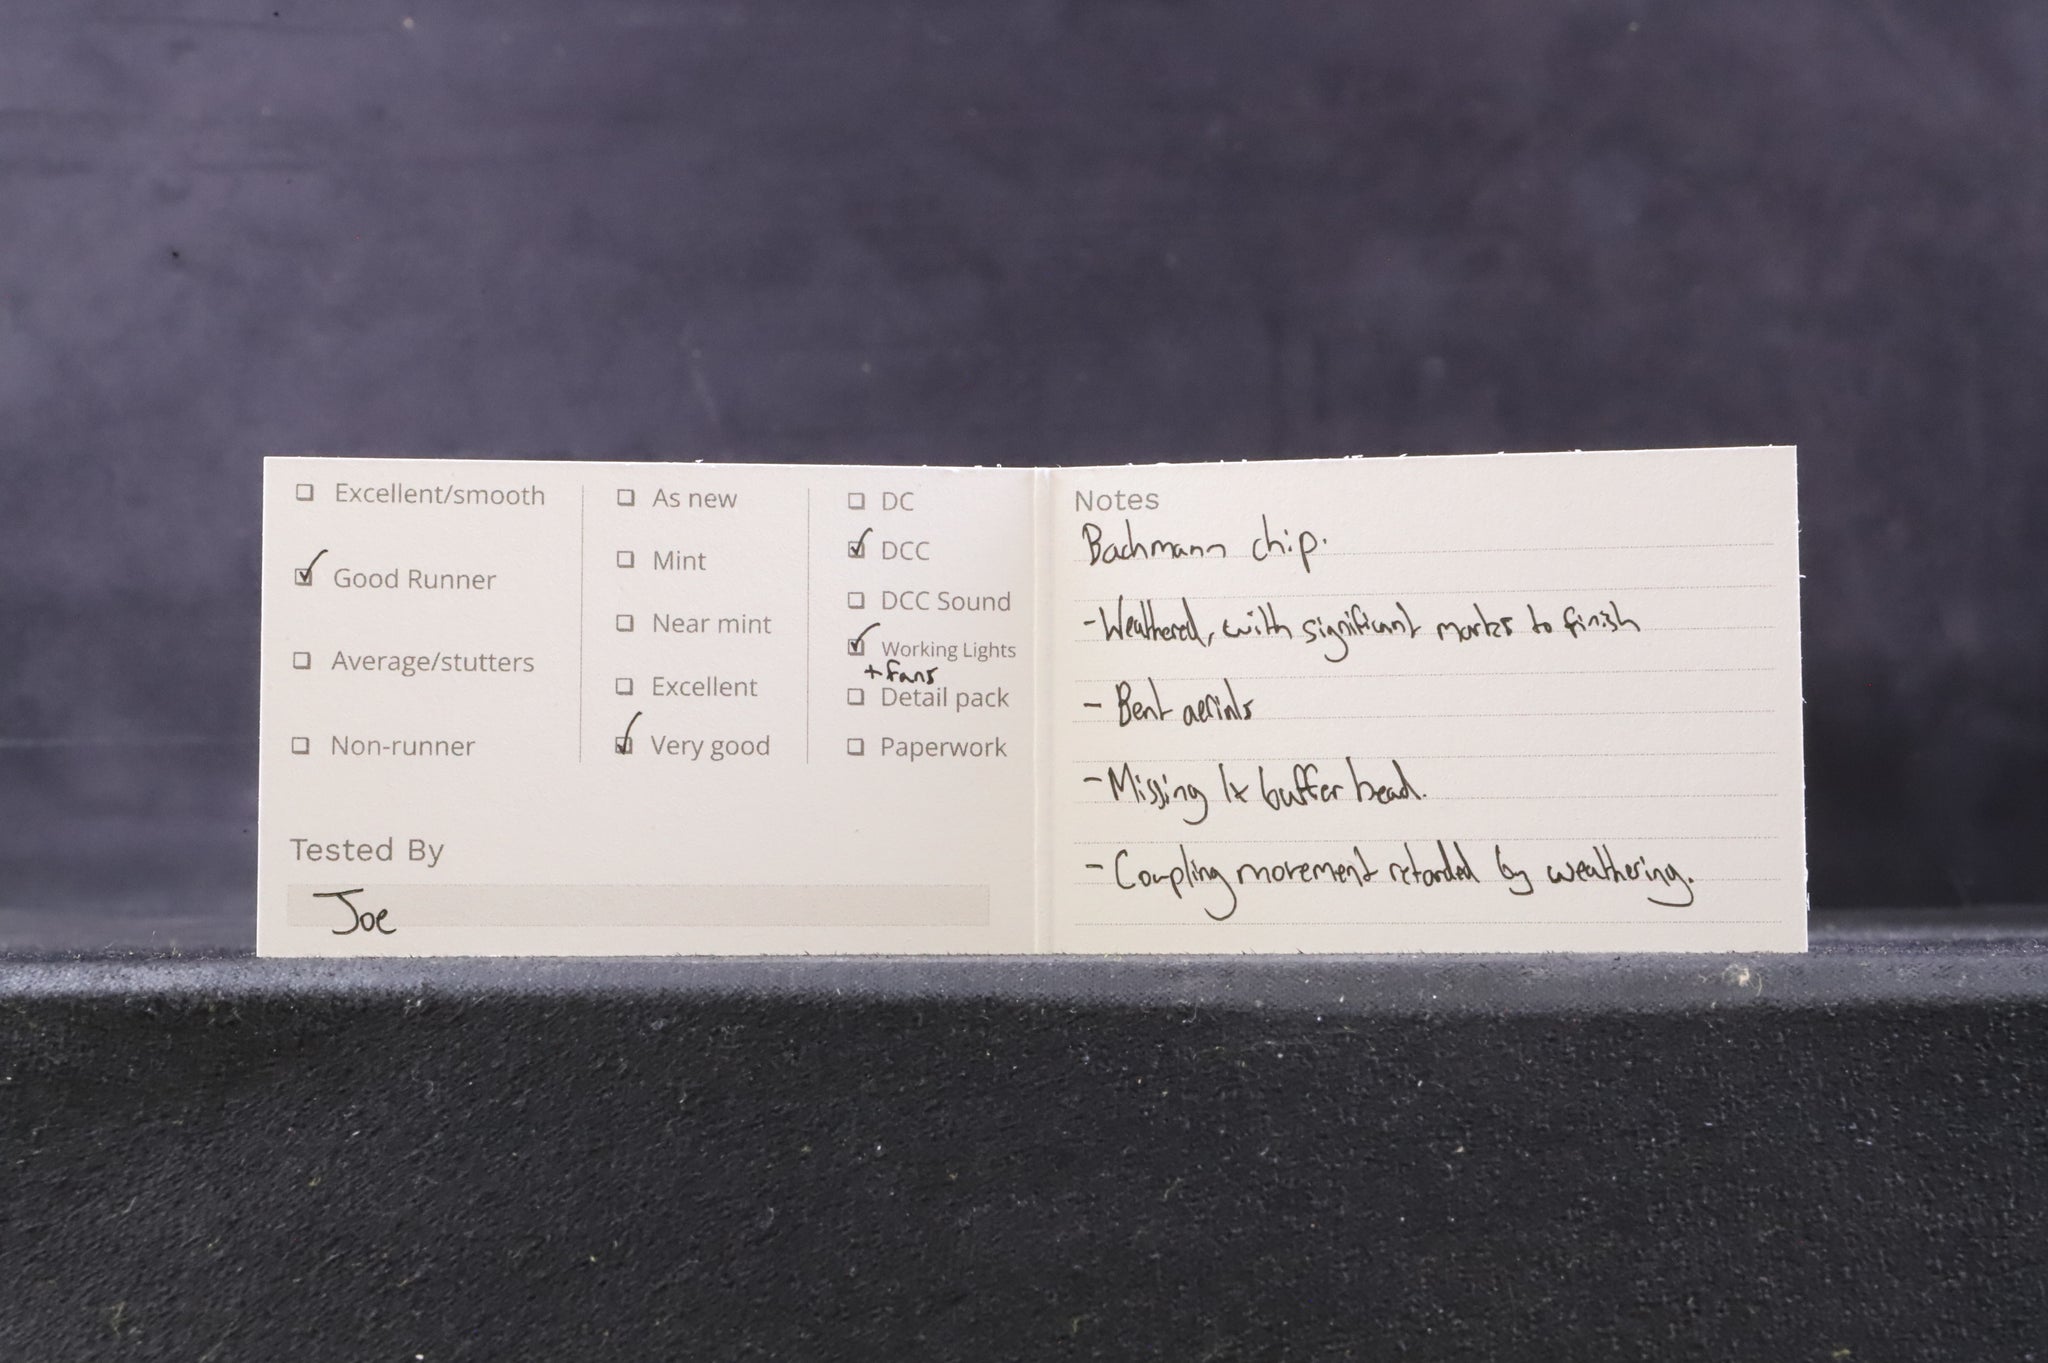 Excellent/smooth
Good Runner
Average/stutters
Non-runner
As new
Mint
Near mint
Excellent
Very good
DC
DCC
DCC Sound
Working Lights
+ fans
Detail pack
Paperwork
Tested By
Joe
Notes
Bachmann chip.
- Weathered, with significant marks to finish
- Bent aerials
- Missing 1x buffer bead.
- Coupling movement retarded by weathering.